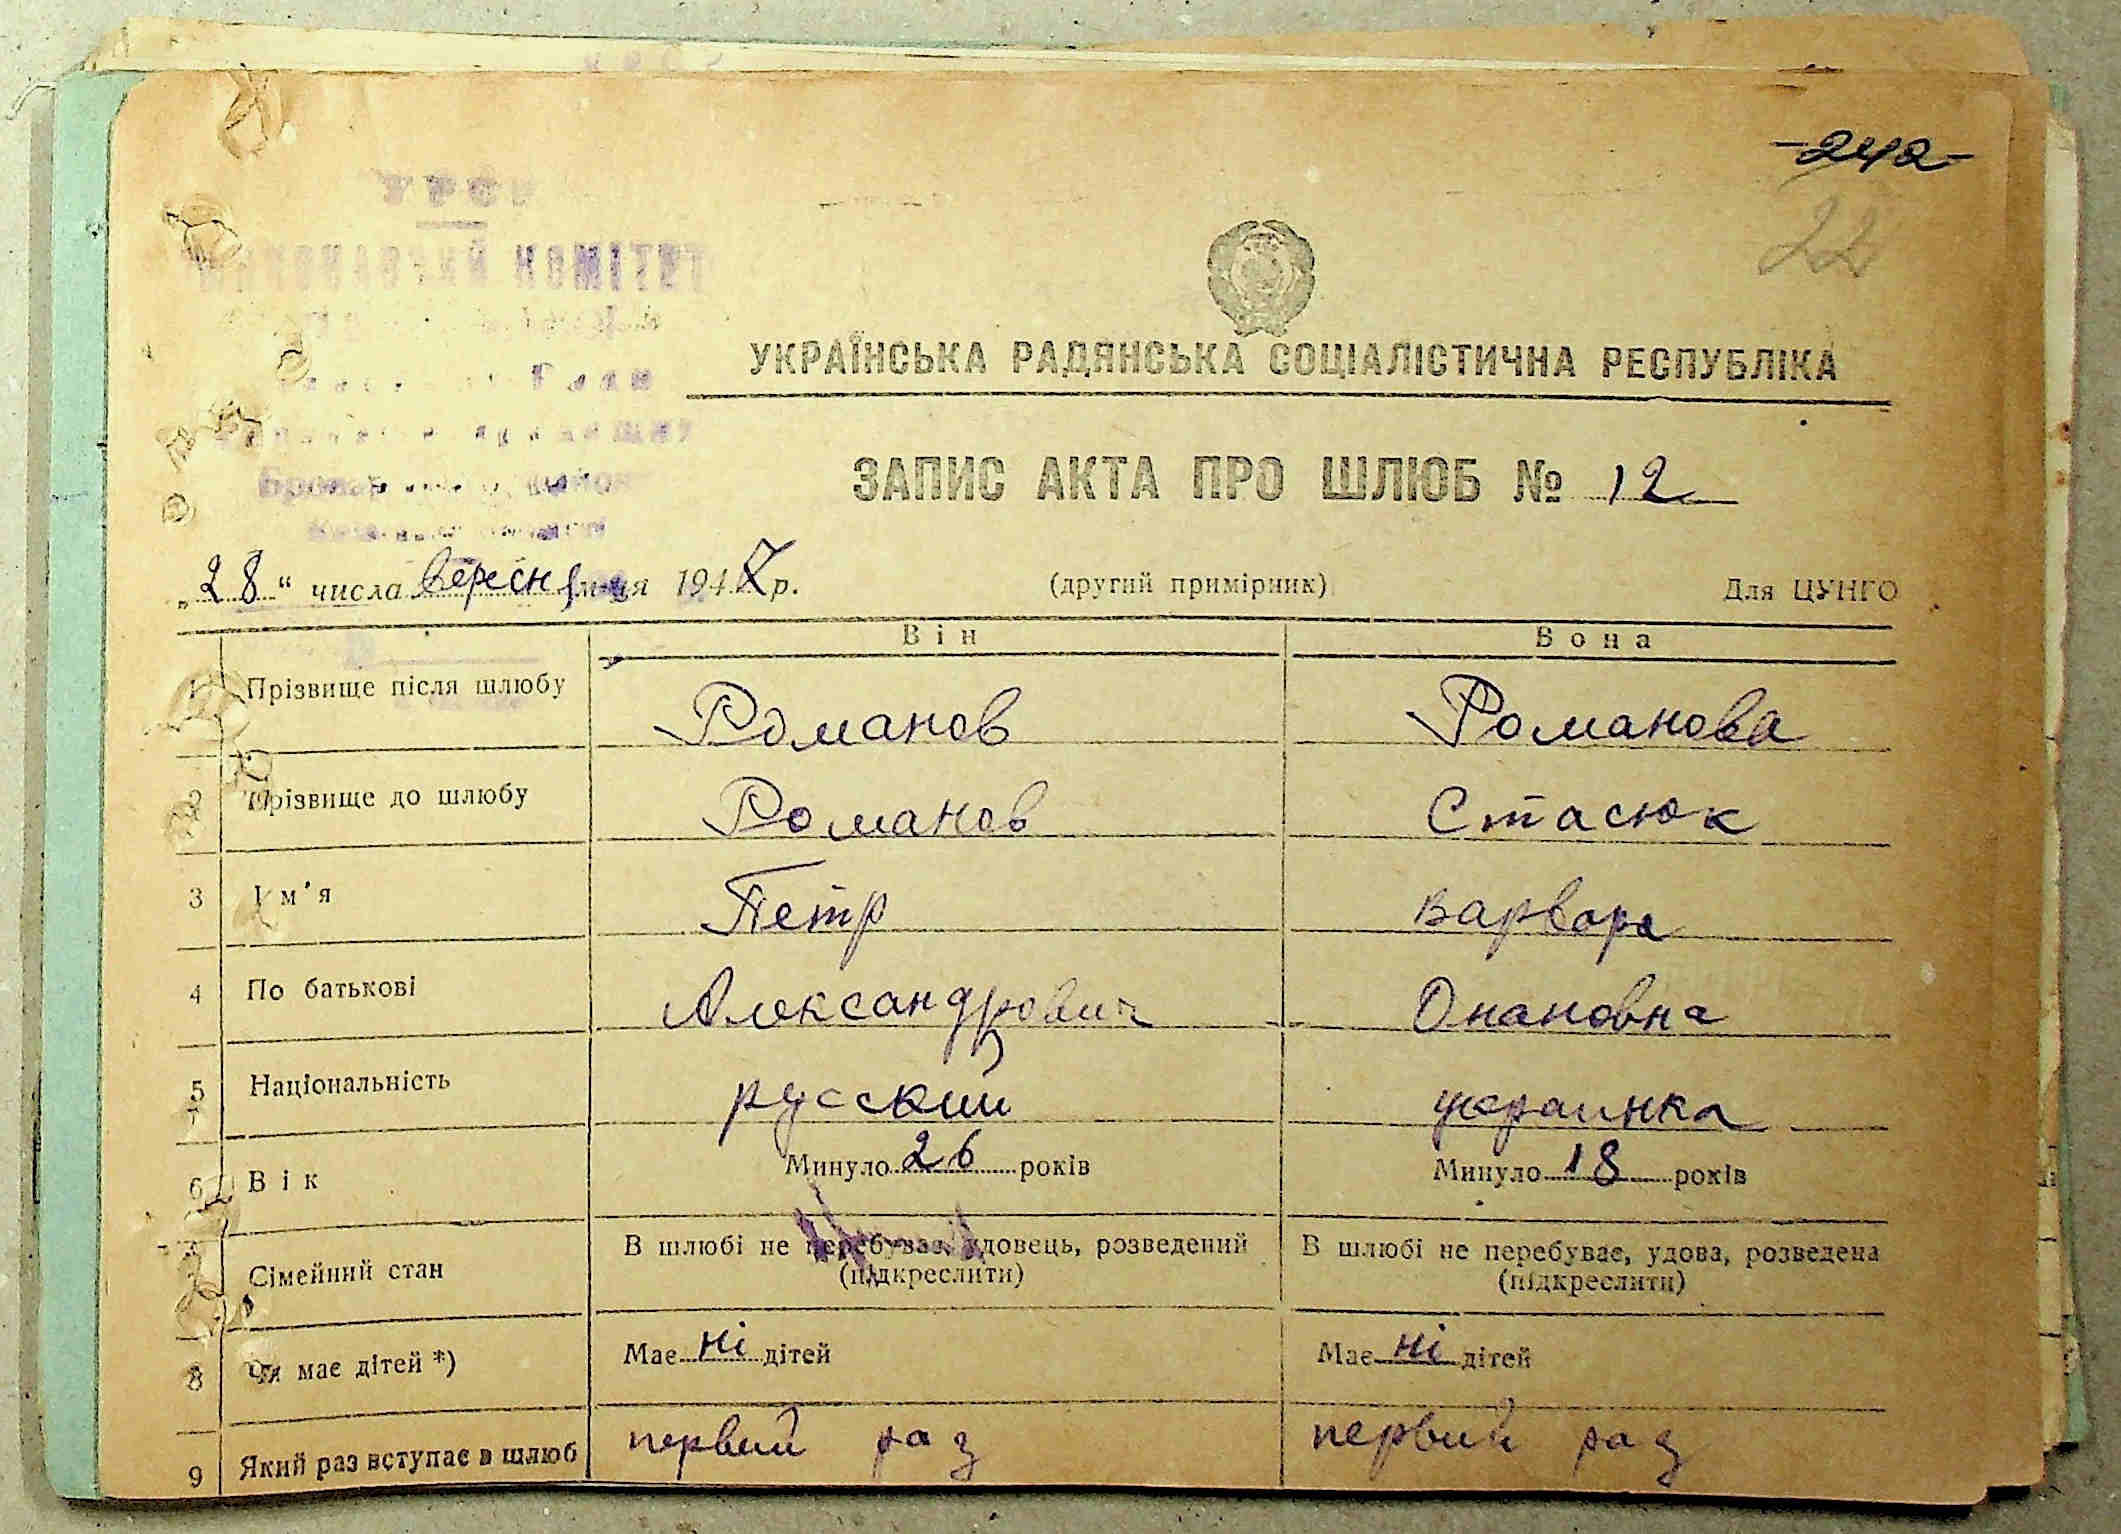 -242-
22
УРСР
ВИКОНАВЧИЙ КОМІТЕТ
УКРАЇНСЬКА РАДЯНСЬКА СОЦІАЛІСТИЧНА РЕСПУБЛІКА
ЗАПИС АКТА ПРО ШЛЮБ № 12
„28“ числа вересня м-ця 1947 р. (другий примірник) Для ЦУНГО
Він Вона
1 Прізвище після шлюбу Романов Романова
2 Прізвище до шлюбу Романов Стасюк
3 Ім'я Петр Варвара
4 По батькові Александрович Онановна
5 Національність русский украинка
6 Вік Минуло 26 років Минуло 18 років
7 Сімейний стан В шлюбі не перебуває, удовець, розведений В шлюбі не перебуває, удова, розведена
(підкреслити) (підкреслити)
8 Чи має дітей *) Має ні дітей Має ні дітей
9 Який раз вступає в шлюб первий раз первий раз